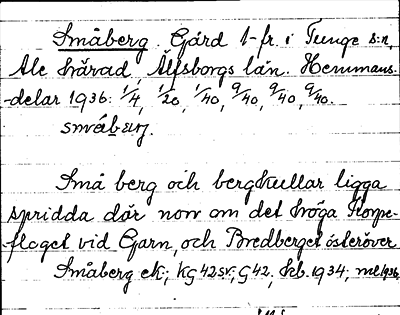 Småberg. Gård 1-fr. i Tunge s:n,
Ale härad, Älfsborgs län. Hemmans-
delar 1936: 1/4, 1/20, 1/40, 9/40, 9/40, 9/40.
småbærj.
Små berg och bergkullar ligga
spridda där norr om det höga Korpe-
flaget vid Garn, och Bredberget österöver
Småberg ek; KG42sv; G42, Hb. 1934; ml 1936